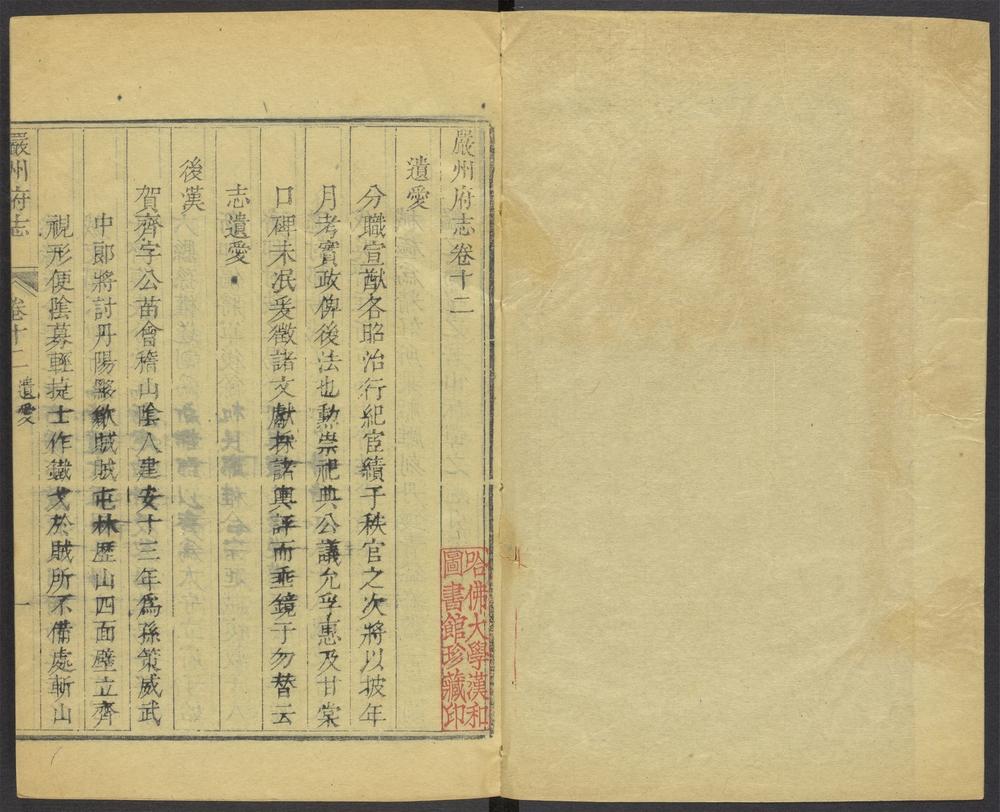 嚴州府志卷十二
遺愛
分職宣猷各昭治行紀宦績于秩官之次將以披年
月考實政俾後法也勲崇祀典公議允孚惠及甘棠
口碑未泯爰徵諸文獻採諸輿評而垂鏡于勿替云
志遺愛
後漢
賀齊字公苗會稽山陰人建安十三年爲孫策威武
中郎將討丹陽黟歙賊賊屯林歷山四面壁立齊
視形便陰募輕捷士作鐵戈於賊所不備處斬山
嚴州府志 卷十二 遺愛 一
哈佛大學漢和
圖書館珍藏印